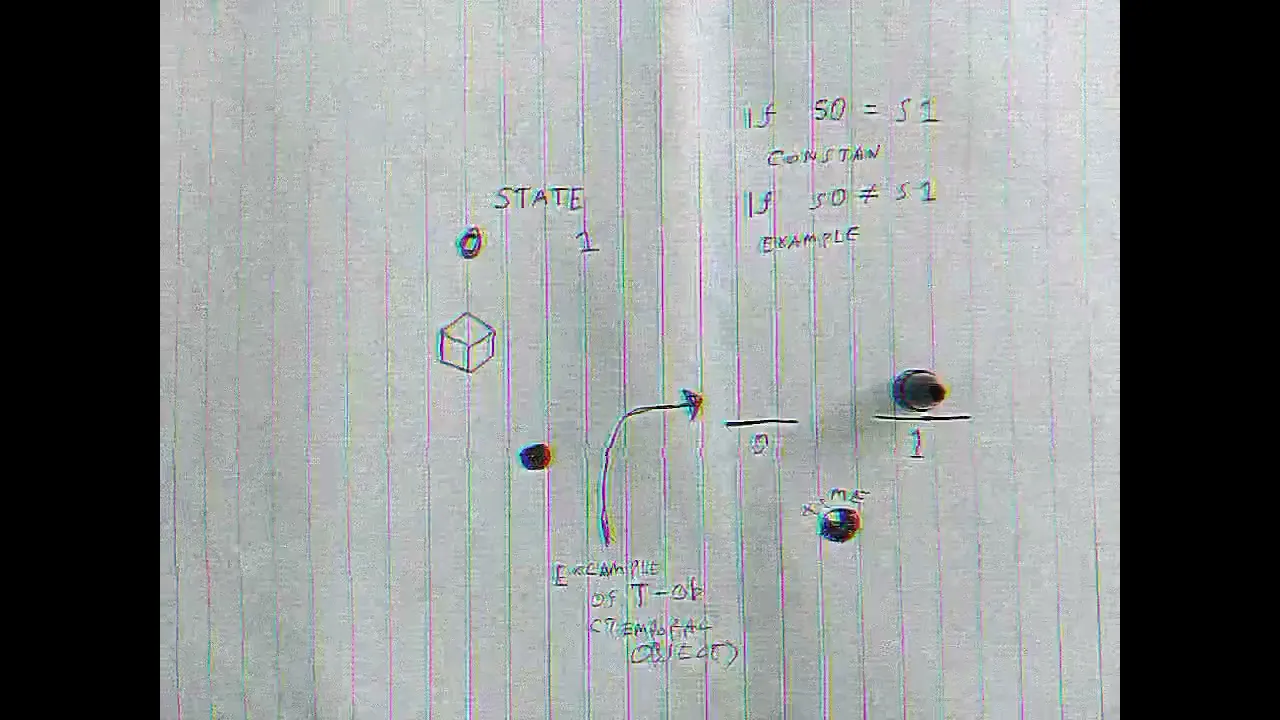 STATE
0 1
If S0 = S1
CONSTAN
If S0 ≠ S1
EXAMPLE
0 1
EXAMPLE
Of T-Ob
(TEMPORAL
OBJECT)